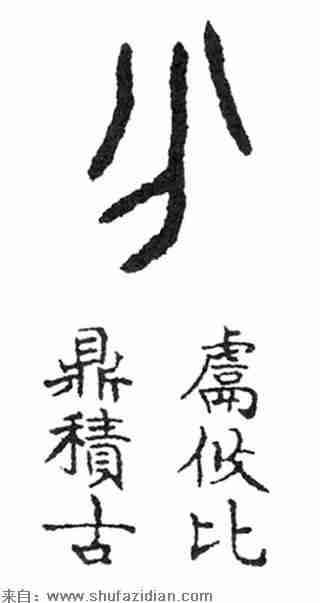 分
鬳攸比
鼎積古
来自：www.shufazidian.com